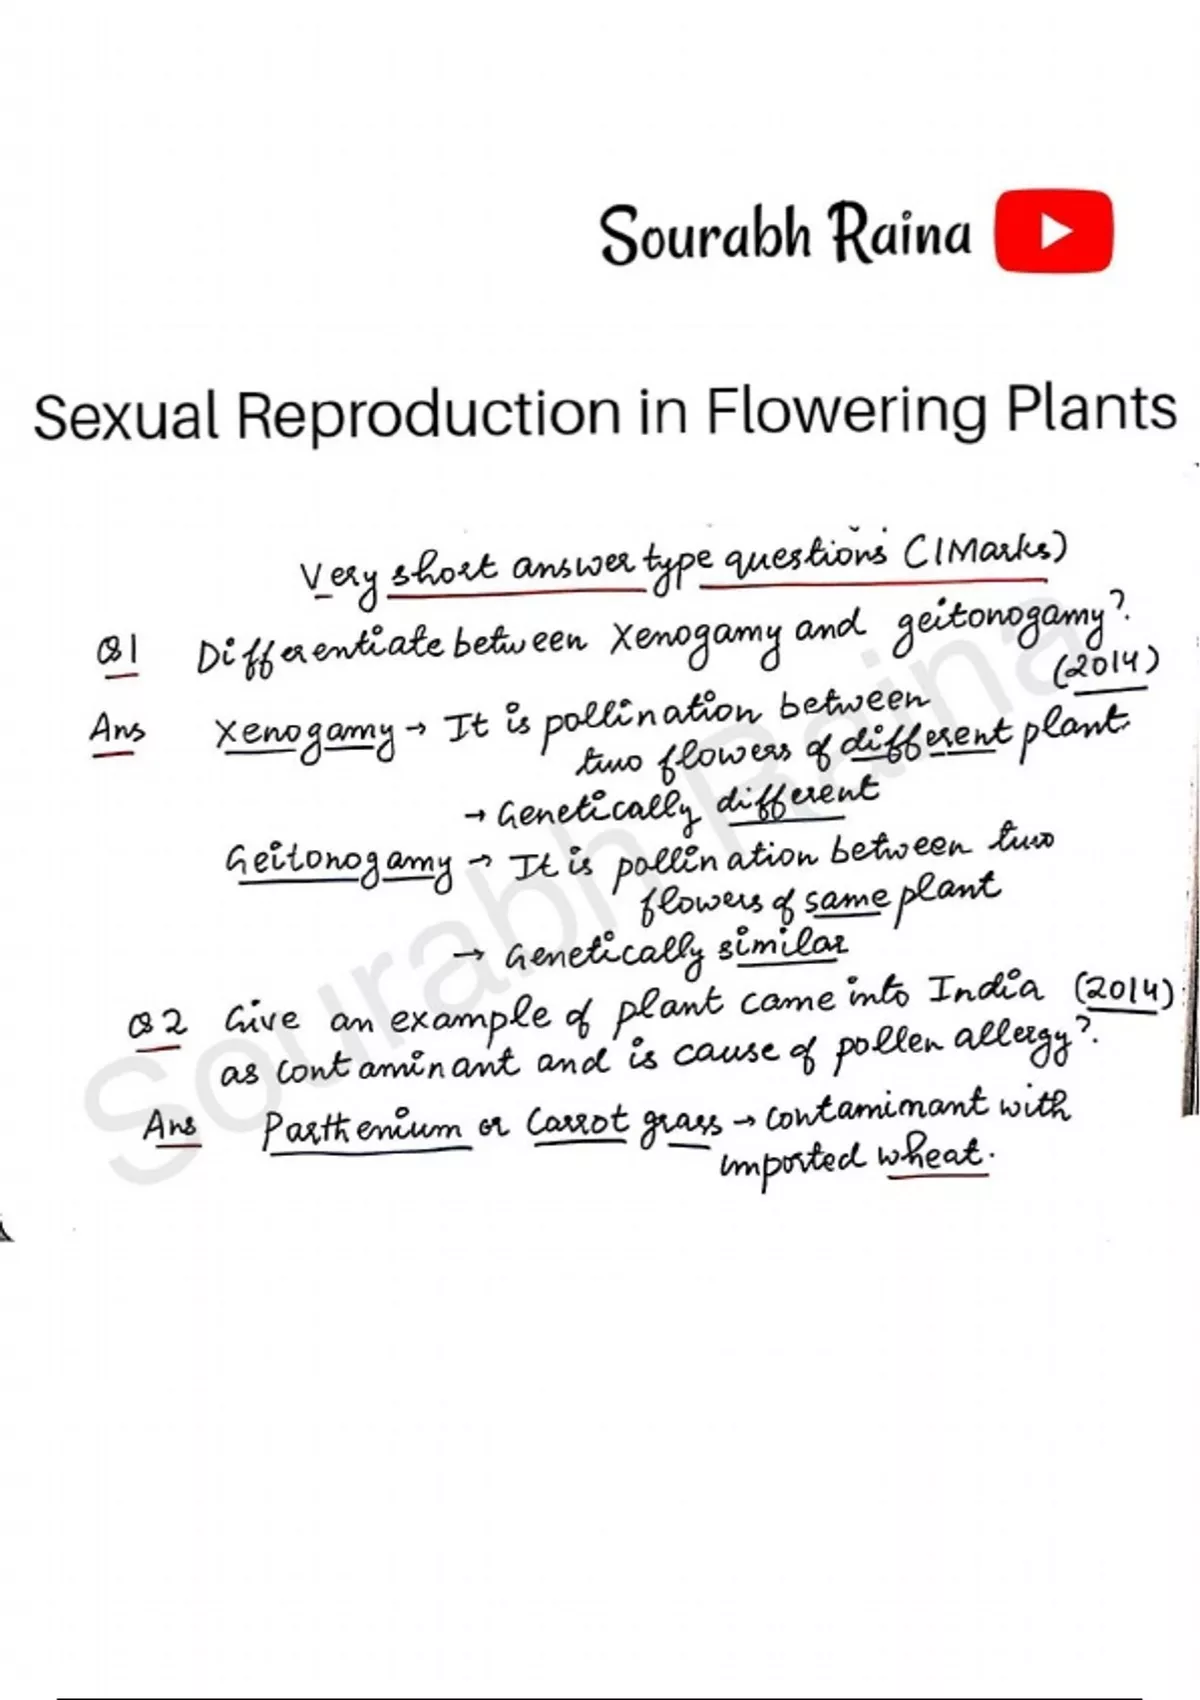 Sourabh Raina
Sexual Reproduction in Flowering Plants
Very short answer type questions (1Marks)
Q1 Differentiate between Xenogamy and geitonogamy?
(2014)
Ans Xenogamy → It is pollination between
two flowers of different plant.
→ Genetically different
Geitonogamy → It is pollination between two
flowers of same plant
→ Genetically similar
Q2 Give an example of plant came into India (2014)
as contaminant and is cause of pollen allergy?
Ans Parthenium or Carrot grass → contaminant with
imported wheat.
Sourabh Raina